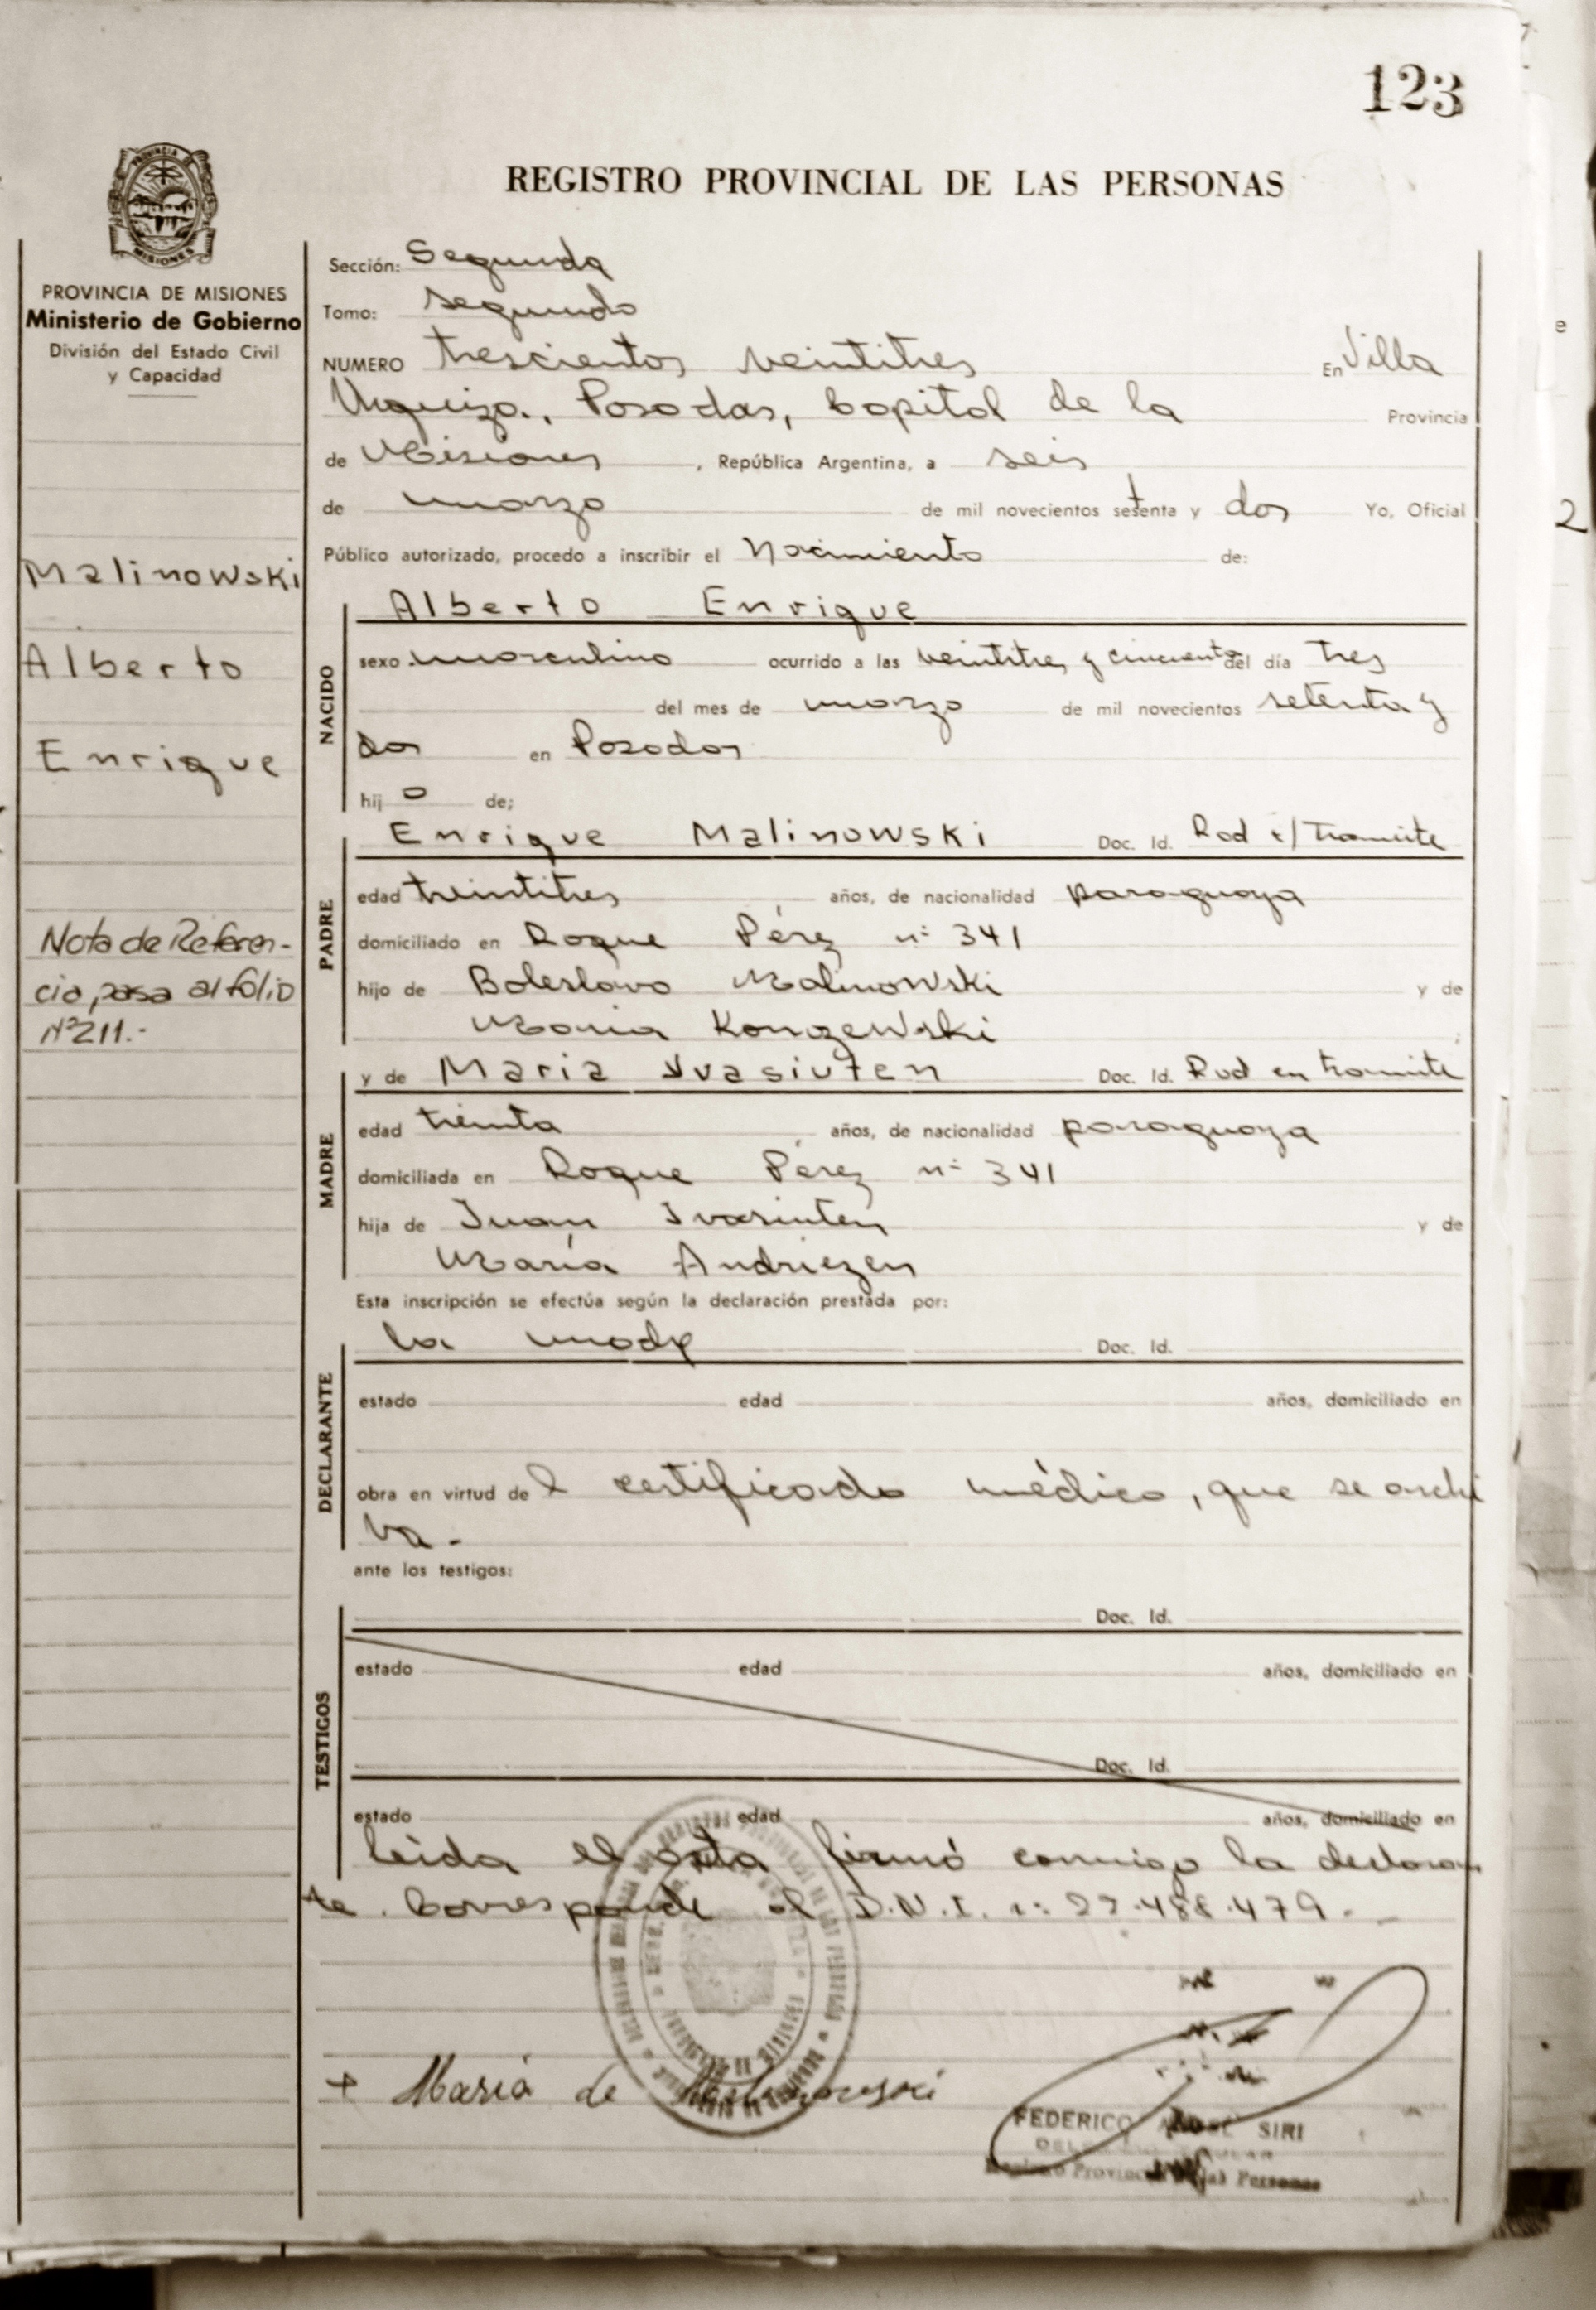 123
REGISTRO PROVINCIAL DE LAS PERSONAS
PROVINCIA DE
MISIONES
PROVINCIA DE MISIONES
Ministerio de Gobierno
División del Estado Civil
y Capacidad
Malinowski
Alberto
Enrique
Nota de Referen-
cia, pasa al folio
Nº211.-
Sección: Segunda
Tomo: segundo
NUMERO trescientos veintitres En Villa
Urquiza, Posadas, Capital de la Provincia
de Misiones, República Argentina, a seis
de marzo de mil novecientos setenta y dos Yo, Oficial
Público autorizado, procedo a inscribir el Nacimiento de:
NACIDO
Alberto Enrique
sexo masculino ocurrido a las veintitres y cincuenta del día tres
del mes de marzo de mil novecientos setenta y
dos en Posadas
hij o de;
PADRE
Enrique Malinowski Doc. Id. Rad e/ tramite
edad treintitres años, de nacionalidad paraguaya
domiciliado en Roque Pérez nº 341
hijo de Boleslavo Malinowski y de
Maria
y de Maria Yvasiuten Doc. Id. Rad en tramite
MADRE
edad treinta años, de nacionalidad paraguaya
domiciliada en Roque Pérez nº 341
hija de Juan Ivasiuten y de
María Andriezen
Esta inscripción se efectúa según la declaración prestada por:
DECLARANTE
la madre Doc. Id.
estado edad años, domiciliado en
obra en virtud de l certificado médico, que se archi
va.-
ante los testigos:
TESTIGOS
Doc. Id.
estado edad años, domiciliado en
Doc. Id.
estado edad años, domiciliado en
leída el acta firmó conmigo la declaran
te. Corresponde al D.N.I. nº 22.488.479.-
+ María de Malinowski
FEDERICO SIRI
Registro Provincial de las Personas